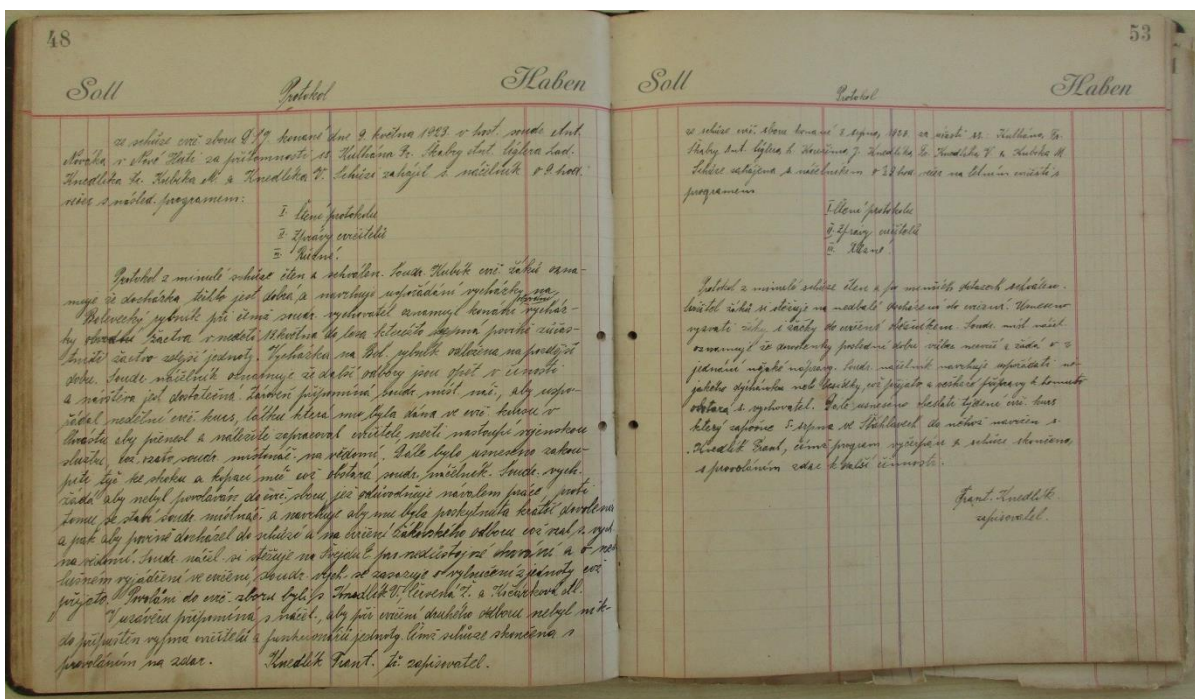 48
Soll Protokol Haben
ze schůze cvič. sboru D.T.J. konané dne 9. května 1923 v host. soudr. Ant.
Nováka v Nové Huti za přítomnosti ss. Kulhána Fr. Škabry Ant. Týglera Lad.
Knedlíka Fr. Kubíka M. a Knedlíka V. Schůzi zahájil s. náčelník o 9. hod.
večer s násled. programem:
I. Čtení protokolu
II. Zprávy cvičitelů
III. Různé.
Protokol z minulé schůze čten a schválen. Soudr. Kubík cvič. žáků ozna-
muje že docházka těchto jest dobrá, a navrhuje uspořádání vycházky na
Bolevecký rybník při čemž soudr. vychovatel oznamuje konání vycház-
ky žactva v neděli 13. května do lesa kteréžto povinně zúčas-
tniti žactvo zdejší jednoty. Vycházka na Bol. rybník odložena na pozdější
dobu. Soudr. náčelník oznamuje že další odbory jsou opět v činnosti
a návštěva jest dostatečná. Zároveň připomíná soudr. míst. náč., aby uspo-
řádal nedělní cvič. kurs, látku která mu byla dána ve cvič. kursu v
aby přenesl a náležitě zapracoval cvičitele, než-li nastoupí vojenskou
službu, což vzato soudr. místonáč. na vědomí. Dále bylo usneseno zakou-
piti tyč ke skoku a kopací míč což obstará soudr. náčelník. Soudr. vych.
žádá aby nebyl povoláván do cvič. sboru, jež odůvodňuje návalem práce, proti
tomu se staví soudr. místnáč. a navrhuje aby mu byla poskytnuta kratší dovolená
a pak aby povinně docházel do schůzí a na cvičení žákovského odboru což vzal s. vych.
na vědomí. Soudr. náčel. si stěžuje na pro nedůstojné chování a o ne-
slušném vyjádření ve cvičení, soudr. vych. se zasazuje o vyloučení z jednoty což
přijato. Povoláni do cvič. sboru byli s. Knedlík V. Červená Ž. a Kučerková M.
V závěru připomíná s. náčel., aby při cvičení druhého odboru nebyl nik-
do připuštěn vyjma cvičitelů a funkcionářů jednoty. Čímž schůze skončena s
provoláním na zdar. Knedlík Frant. tč. zapisovatel.
53
Soll Protokol Haben
ze schůze cvič. sboru konané 2. srpna 1923 za účasti ss. Kulhána Fr.
Škabry Ant. Týglera L. J. Knedlíka Fr. Knedlíka V. a Kubíka M.
Schůze zahájena s. náčelníkem o ½9 hod. večer na letním cvičišti s
programem
I. Čtení protokolu
II. Zprávy cvičitelů
III. Různé.
Protokol z minulé schůze čten a po menších dotazech schválen.
Cvičitel žáků si stěžuje na nedbalé docházení do cvičení. Usneseno
vyzvati žáky i žačky do cvičení oběžníkem. Soudr. míst. náčel.
oznamuje že dorostenky poslední dobu vůbec necvičí a žádá o
jednání nějaké nápravy. Soudr. náčelník navrhuje uspořádati ně-
jakého dýchánku neb besídky, což přijato a veškeré přípravy k tomuto
obstará s. vychovatel. Dále usneseno obeslati týdenní cvič. kurs
který započne 5. srpna ve Šťáhlavech do něhož navržen s.
Knedlík Frant., čímž program vyčerpán a schůze skončena,
s provoláním zdar k další činnosti.
Frant. Knedlík
zapisovatel.